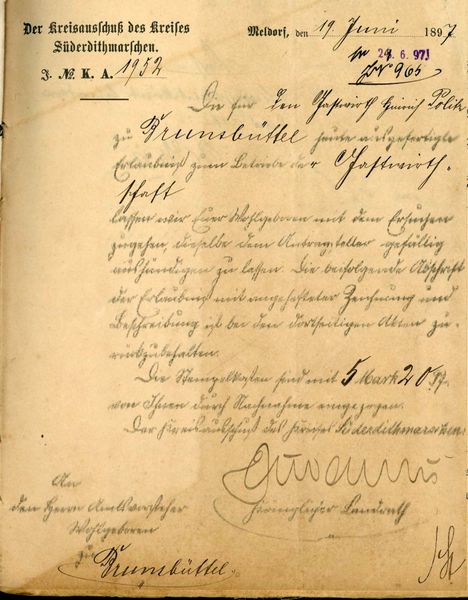 Der Kreisausschuß des Kreises
Süderdithmarschen.
J. № K. A. 1952
Meldorf, den 19. Juni 1897
24. 6. 97
J.№ 965
Die für den Gastwirth Heinrich
zu Brunsbüttel heute ausgefertigte
Erlaubniß zum Betriebe der Gastwirth-
schaft
lassen wir Euer Wohlgeboren mit dem Ersuchen
zugehen, dieselbe dem Antragsteller gefällig
aushändigen zu lassen. Die beifolgende Abschrift
der Erlaubniß mit angehefteter Zeichnung und
Beschreibung ist bei den dortseitigen Akten zu-
rückzubehalten.
Die Stempelkosten sind mit 5 Mark 20 Pf.
von Ihnen durch Nachnahme eingezogen.
Der Kreisausschuß des Kreises Süderdithmarschen.
Königlicher Landrath
An
den Herrn Amtsvorsteher
Wohlgeboren
zu
Brunsbüttel.